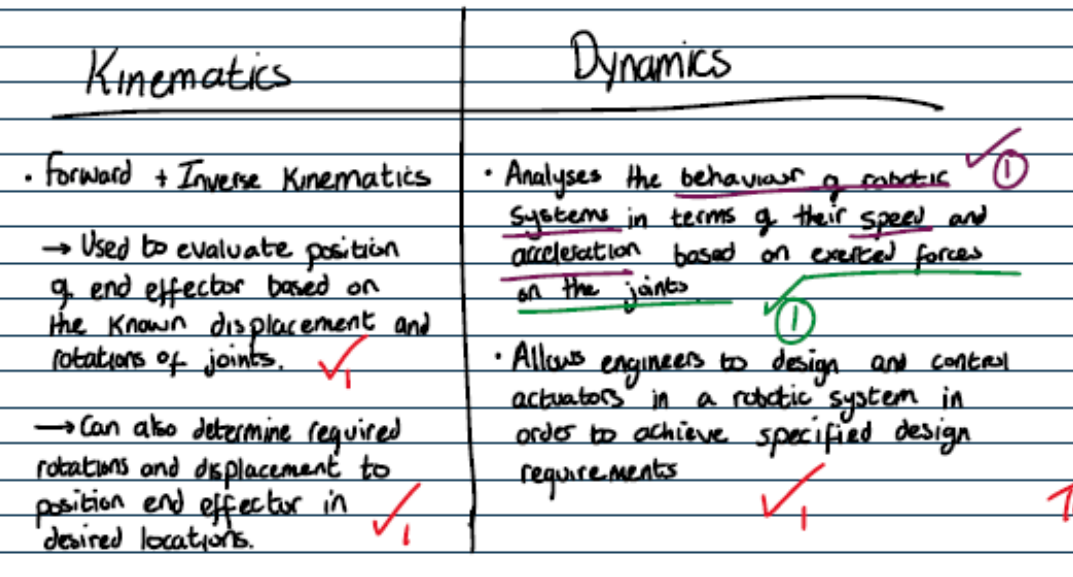 Kinematics
• Forward + Inverse Kinematics
→ Used to evaluate position
of end effector based on
the known displacement and
rotations of joints. ✓1
→ Can also determine required
rotations and displacement to
position end effector in
desired locations. ✓1
Dynamics
• Analyses the behaviour of robotic ✓①
systems in terms of their speed and
acceleration based on exerted forces
on the joints ✓①
• Allows engineers to design and control
actuators in a robotic system in
order to achieve specified design
requirements ✓1